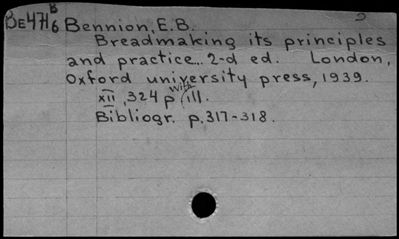 BE4716 B Bennion, E.B. 2
Breadmaking its principles
and practice... 2-d ed. London,
Oxford university press, 1939.
xii, 324 p with ill.
Bibliogr. p.317-318.